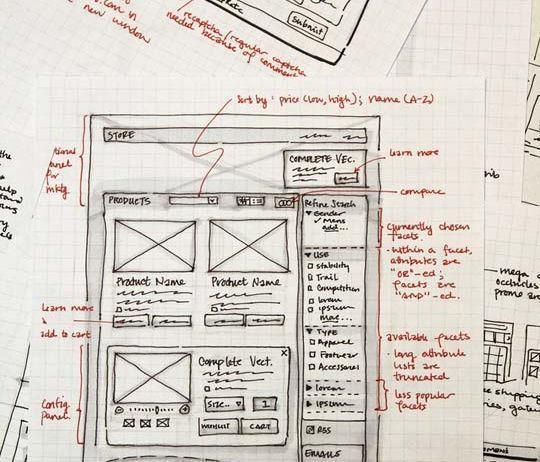 new window
recaptcha/regular captcha
needed because of comment
submit
sort by: price (low, high); name (A-Z)
STORE
COMPLETE VEC.
learn more
compare
PRODUCTS
Refine Search
Gender
Mens
add...
currently chosen
facets.
- within a facet,
attributes are
"OR"-ed;
facets are
"and"-ed.
USE
Stability
Trail
Competition
lorem
ipsum
more...
Product Name
Product Name
learn more
&
add to cart
TYPE
Apparel
Footwear
Accessories
available facets
- long attribute
lists are
truncated
less popular
facets
lorem
ipsum
Complete Vect.
X
Size..
1
WISHLIST
CART
Config.
panel.
RSS
EMAILS
mega
occludes
promo are
shopping